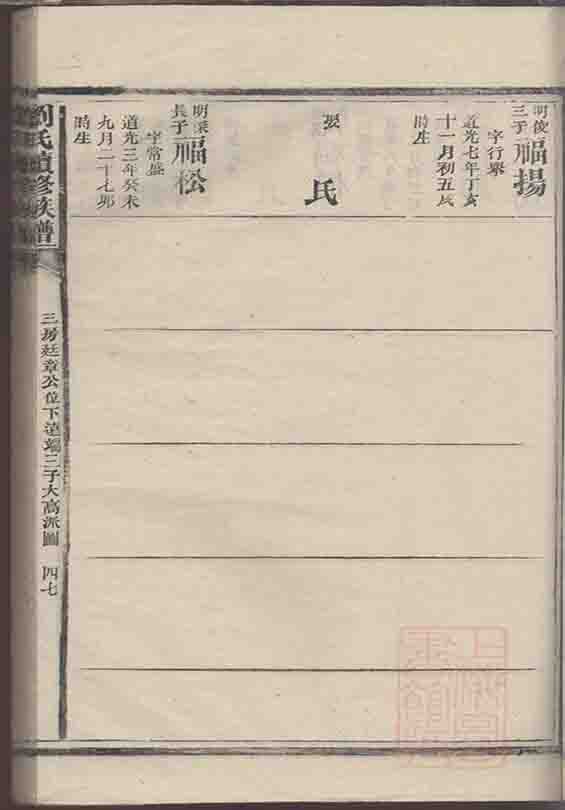 明俊
三子
福揚
字行舉
道光七年丁亥
十一月初五辰
時生
張
氏
明深
長子
福松
字常盛
道光三年癸未
九月二十七卯
時生
劉氏續修族譜
三房廷章公位下達端三子大高派圖
四七